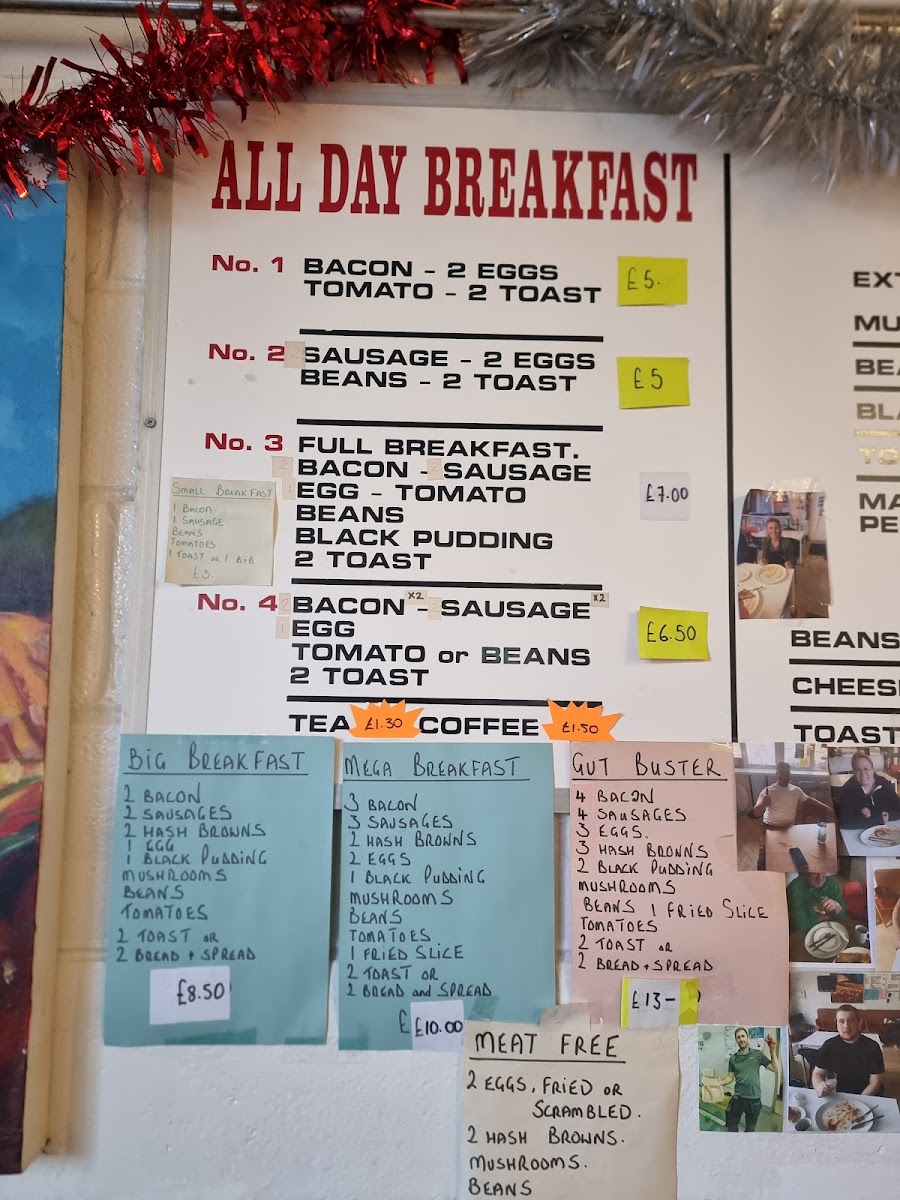 ALL DAY BREAKFAST
No. 1 BACON - 2 EGGS
TOMATO - 2 TOAST
£5.
No. 2 2 SAUSAGE - 2 EGGS
BEANS - 2 TOAST
£5
No. 3 FULL BREAKFAST.
2 BACON - 2 SAUSAGE
1 EGG - TOMATO
BEANS
BLACK PUDDING
2 TOAST
£7.00
SMALL BREAKFAST
1 BACON
1 SAUSAGE
BEANS
TOMATOES
1 TOAST or 1 B+B
£5.
No. 4 2 BACON x2 - 2 SAUSAGE x2
1 EGG
TOMATO or BEANS
2 TOAST
£6.50
TEA £1.30 COFFEE £1.50
EXT
MU
BEA
BLA
TO
MA
PE
BEANS
CHEES
TOAST
BIG BREAKFAST
2 BACON
2 SAUSAGES
2 HASH BROWNS
1 EGG
1 BLACK PUDDING
MUSHROOMS
BEANS
TOMATOES
2 TOAST or
2 BREAD + SPREAD
£8.50
MEGA BREAKFAST
3 BACON
3 SAUSAGES
2 HASH BROWNS
2 EGGS
1 BLACK PUDDING
MUSHROOMS
BEANS
TOMATOES
1 FRIED SLICE
2 TOAST OR
2 BREAD and SPREAD
£ £10.00
GUT BUSTER
4 BACON
4 SAUSAGES
3 EGGS.
3 HASH BROWNS
2 BLACK PUDDING
MUSHROOMS
BEANS 1 FRIED SLICE
TOMATOES
2 TOAST or
2 BREAD + SPREAD
£13-
MEAT FREE
2 EGGS, FRIED OR
SCRAMBLED.
2 HASH BROWNS.
MUSHROOMS.
BEANS